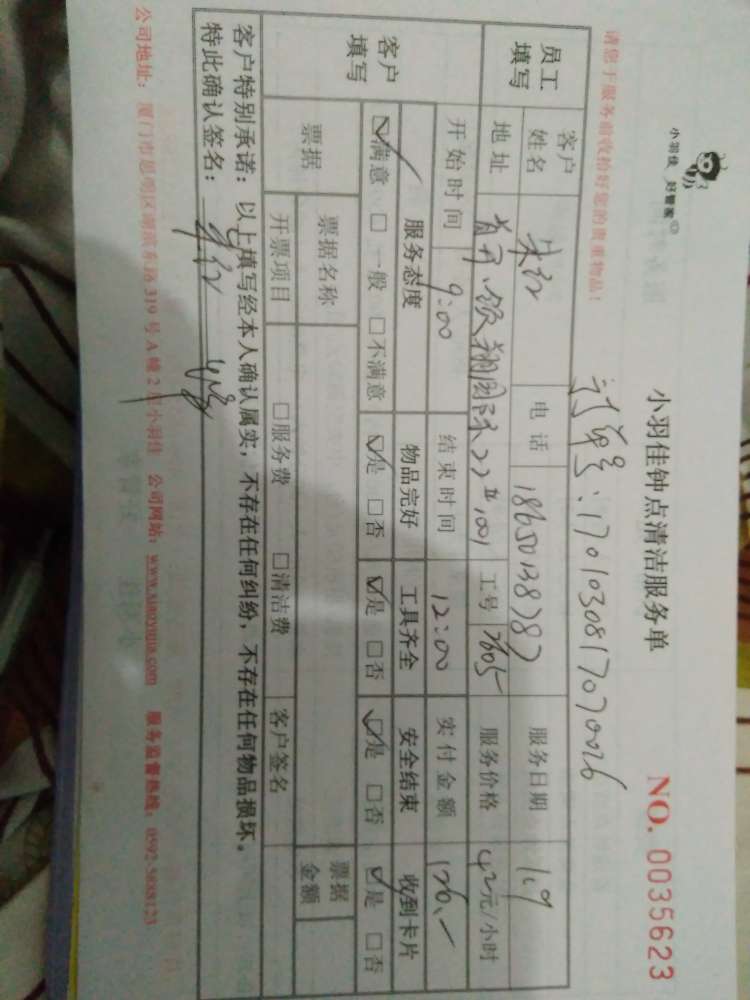 小羽佳 好管家
小羽佳钟点清洁服务单
NO. 0035623
请您于服务前收拾好您的贵重物品！
订单号：1701030817070026
员工填写
客户姓名 电话 18650138787 服务日期 1.9
地址 22# 1001 工号 7605 服务价格 42元/小时
开始时间 9:00 结束时间 12:00 实付金额 126.-
客户填写
服务态度 物品完好 工具齐全 安全结束 收到卡片
☑满意 □一般 □不满意 ☑是 □否 ☑是 □否 ☑是 □否 ☑是 □否
票据 票据名称 票据金额
开票项目 □服务费 □清洁费 客户签名
客户特别承诺：以上填写经本人确认属实，不存在任何纠纷，不存在任何物品损坏。
特此确认签名：
公司地址：厦门市思明区湖滨东路319号A幢2 小羽佳 公司网站：www.xiaoyujia.com 服务监督热线：0592-5888123